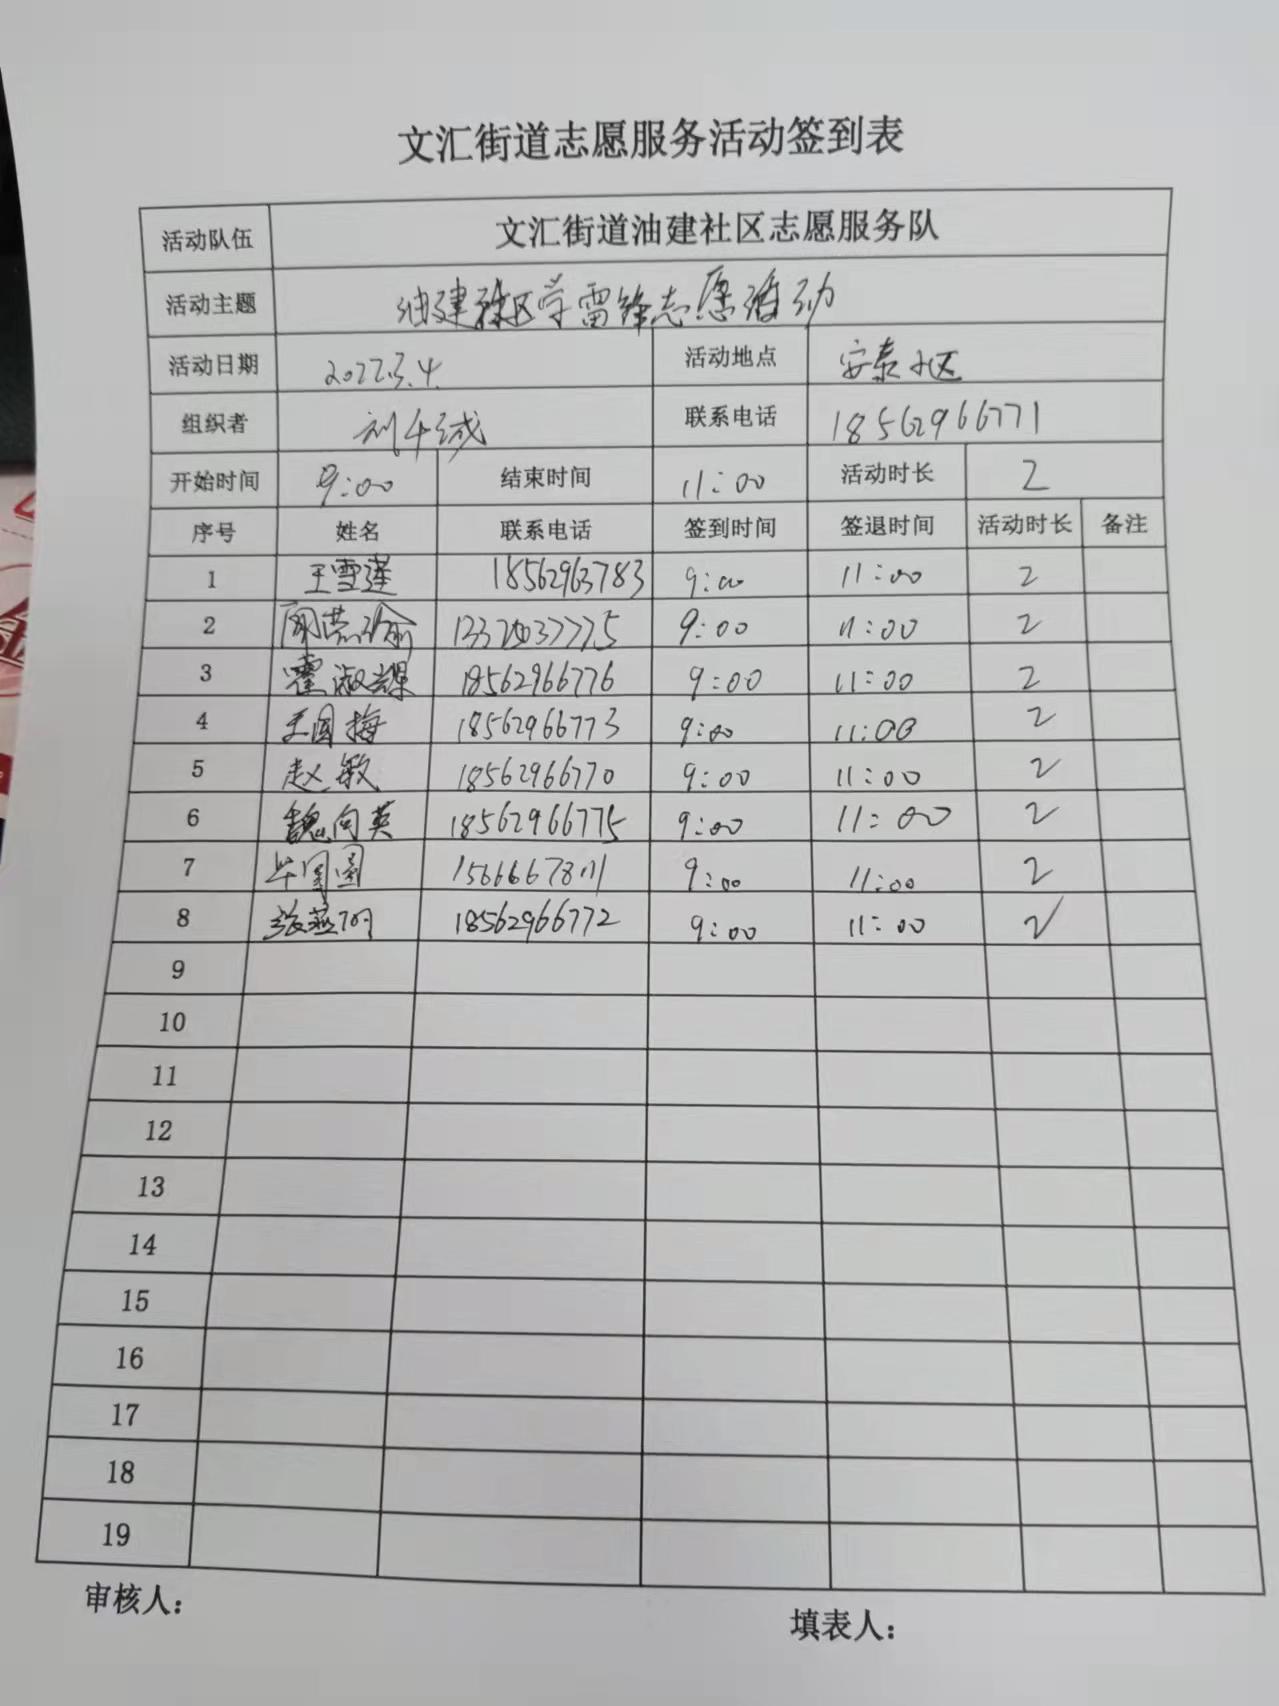 文汇街道志愿服务活动签到表
活动队伍 文汇街道油建社区志愿服务队
活动主题 油建社区学雷锋志愿活动
活动日期 2022.3.4. 活动地点 安泰小区
组织者 联系电话 18562966771
开始时间 9:00 结束时间 11:00 活动时长 2
序号 姓名 联系电话 签到时间 签退时间 活动时长 备注
1 王雪莲 18562963783 9:00 11:00 2
2 9:00 11:00 2
3 霍淑 18562966776 9:00 11:00 2
4 王国梅 18562966773 9:00 11:00 2
5 赵敏 18562966770 9:00 11:00 2
6 魏向英 18562966775 9:00 11:00 2
7 毕圆圆 9:00 11:00 2
8 张燕 18562966772 9:00 11:00 2
9
10
11
12
13
14
15
16
17
18
19
审核人： 填表人：